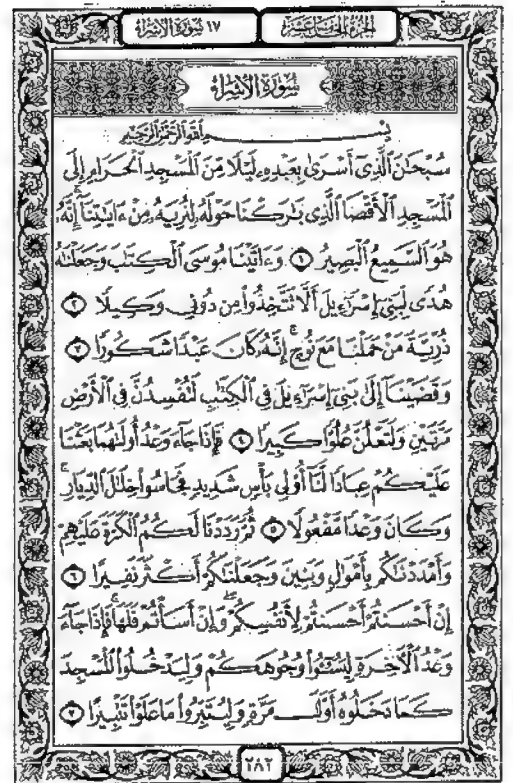 الجزء الخامس عشر
١٧ سورة الإسراء
سورة الإسراء
بسم الله الرحمن الرحيم
سُبْحَٰنَ ٱلَّذِىٓ أَسْرَىٰ بِعَبْدِهِۦ لَيْلًا مِّنَ ٱلْمَسْجِدِ ٱلْحَرَامِ إِلَى
ٱلْمَسْجِدِ ٱلْأَقْصَا ٱلَّذِى بَٰرَكْنَا حَوْلَهُۥ لِنُرِيَهُۥ مِنْ ءَايَٰتِنَآ ۚ إِنَّهُۥ
هُوَ ٱلسَّمِيعُ ٱلْبَصِيرُ ١ وَءَاتَيْنَا مُوسَى ٱلْكِتَٰبَ وَجَعَلْنَٰهُ
هُدًى لِّبَنِىٓ إِسْرَٰٓءِيلَ أَلَّا تَتَّخِذُوا۟ مِن دُونِى وَكِيلًا ٢
ذُرِّيَّةَ مَنْ حَمَلْنَا مَعَ نُوحٍ ۚ إِنَّهُۥ كَانَ عَبْدًا شَكُورًا ٣
وَقَضَيْنَآ إِلَىٰ بَنِىٓ إِسْرَٰٓءِيلَ فِى ٱلْكِتَٰبِ لَتُفْسِدُنَّ فِى ٱلْأَرْضِ
مَرَّتَيْنِ وَلَتَعْلُنَّ عُلُوًّا كَبِيرًا ٤ فَإِذَا جَآءَ وَعْدُ أُولَىٰهُمَا بَعَثْنَا
عَلَيْكُمْ عِبَادًا لَّنَآ أُو۟لِى بَأْسٍ شَدِيدٍ فَجَاسُوا۟ خِلَٰلَ ٱلدِّيَارِ ۚ
وَكَانَ وَعْدًا مَّفْعُولًا ٥ ثُمَّ رَدَدْنَا لَكُمُ ٱلْكَرَّةَ عَلَيْهِمْ
وَأَمْدَدْنَٰكُم بِأَمْوَٰلٍ وَبَنِينَ وَجَعَلْنَٰكُمْ أَكْثَرَ نَفِيرًا ٦
إِنْ أَحْسَنتُمْ أَحْسَنتُمْ لِأَنفُسِكُمْ ۖ وَإِنْ أَسَأْتُمْ فَلَهَا ۚ فَإِذَا جَآءَ
وَعْدُ ٱلْءَاخِرَةِ لِيَسُۥٓـُٔوا۟ وُجُوهَكُمْ وَلِيَدْخُلُوا۟ ٱلْمَسْجِدَ
كَمَا دَخَلُوهُ أَوَّلَ مَرَّةٍ وَلِيُتَبِّرُوا۟ مَا عَلَوْا۟ تَتْبِيرًا ٧
٢٨٢